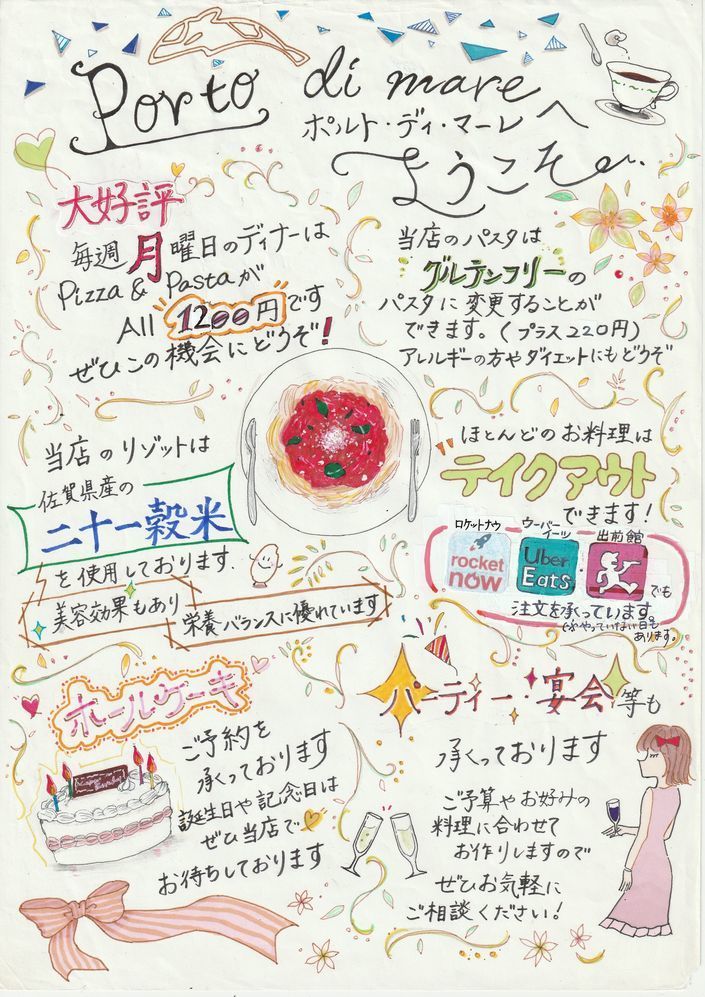 Porto di mare
ポルト・ディ・マーレへ
ようこそ
大好評
毎週月曜日のディナーは
Pizza & Pastaが
All 1200円です
ぜひこの機会にどうぞ!
当店のパスタは
グルテンフリーの
パスタに変更することが
できます。(プラス220円)
アレルギーの方やダイエットにもどうぞ
当店のリゾットは
佐賀県産の
二十一穀米
を使用しております.
美容効果もあり
栄養バランスに優れています
ほとんどのお料理は
テイクアウト
できます!
ロケットナウ
rocket
now
ウーバー
イーツ
Uber
Eats
出前館
でも
注文を承っています。
(※やっていない日も
あります。
ホールケーキ
ご予約を
承っております
誕生日や記念日は
ぜひ当店で
お待ちしております
パーティー・宴会等も
承っております
ご予算やお好みの
料理に合わせて
お作りしますので
ぜひお気軽に
ご相談ください!